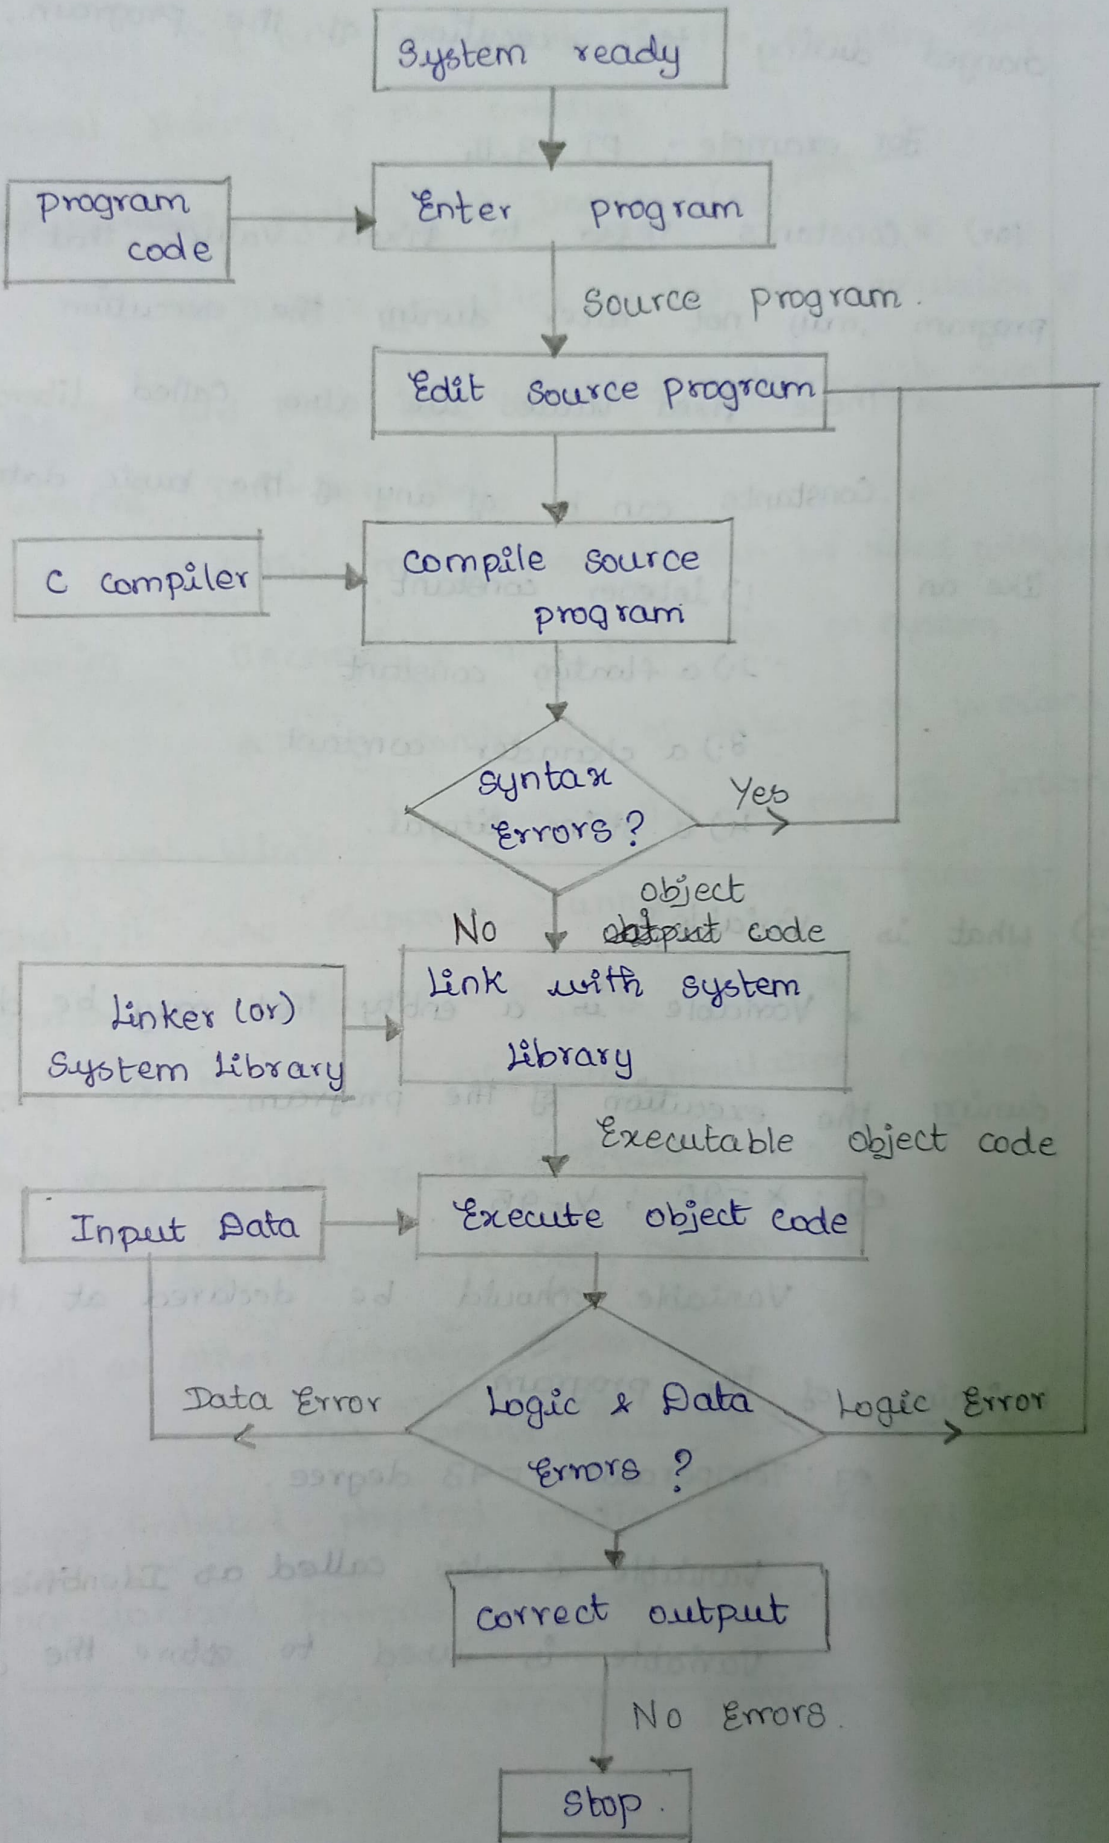 System ready
Program
code
Enter program
Source program.
Edit Source program
C compiler
compile source
program
syntax
Errors?
Yes
No
object
code
Link with system
Library
Linker (or)
System Library
Executable object code
Input Data
Execute object code
Data Error
Logic & Data
Errors?
Logic Error
correct output
No Errors.
Stop.